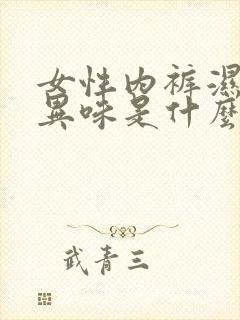 女性内裤濕
異味是什麼
武青三